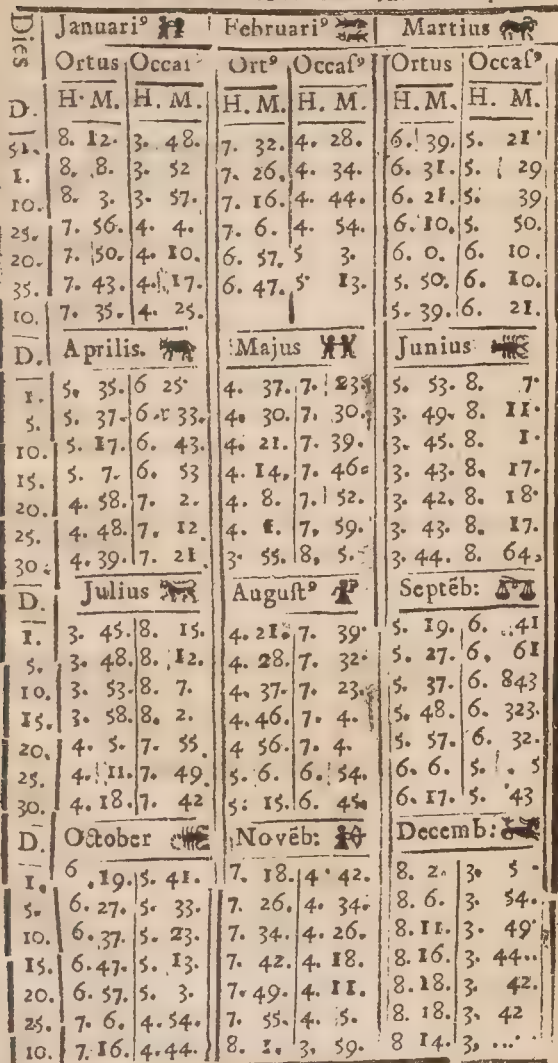 Dies Januariꝰ Februariꝰ Martius
Ortus Occaſ Ortꝰ Occaſꝰ Ortus Occaſꝰ
D. H. M. H. M. H. M. H. M. H. M. H. M.
51. 8. 12. 3. 48. 7. 32. 4. 28. 6. 39. 5. 21
1. 8. 8. 3. 52 7. 26. 4. 34. 6. 31. 5. 29
10. 8. 3. 3. 57. 7. 16. 4. 44. 6. 21. 5. 39
25. 7. 56. 4. 4. 7. 6. 4. 54. 6. 10. 5. 50.
20. 7. 50. 4. 10. 6. 57. 5 3. 6. 0. 6. 10.
35. 7. 43. 4. 17. 6. 47. 5. 13. 5. 50. 6. 10.
10. 7. 35. 4. 25. 5. 39. 6. 21.
D. Aprilis. Majus Junius
1. 5. 35. 6 25. 4. 37. 7. 23. 5. 53. 8. 7.
5. 5. 37. 6. 33. 4. 30. 7. 30. 3. 49. 8. 11.
10. 5. 17. 6. 43. 4. 21. 7. 39. 3. 45. 8. 1.
15. 5. 7. 6. 53 4. 14. 7. 46. 3. 43. 8. 17.
20. 4. 58. 7. 2. 4. 8. 7. 52. 3. 42. 8. 18.
25. 4. 48. 7. 12 4. 1. 7. 59. 3. 43. 8. 17.
30. 4. 39. 7. 21 3. 55. 8. 5. 3. 44. 8. 64.
D. Julius Auguſtꝰ Septēb:
1. 3. 45. 8. 15. 4. 21. 7. 39. 5. 19. 6. 41
5. 3. 48. 8. 12. 4. 28. 7. 32. 5. 27. 6. 61
10. 3. 53. 8. 7. 4. 37. 7. 23. 5. 37. 6. 843
15. 3. 58. 8. 2. 4. 46. 7. 4. 5. 48. 6. 323.
20. 4. 5. 7. 55 4 56. 7. 4. 5. 57. 6. 32.
25. 4. 11. 7. 49 5. 6. 6. 54. 6. 6. 5. 5
30. 4. 18. 7. 42 5: 15. 6. 45. 6. 17. 5. 43
D. October Novēb: Decemb:
1. 6 .19. 5. 41. 7. 18. 4. 42. 8. 2. 3. 5.
5. 6. 27. 5. 33. 7. 26. 4. 34. 8. 6. 3. 54.
10. 6. 37. 5. 23. 7. 34. 4. 26. 8. 11. 3. 49
15. 6. 47. 5. 13. 7. 42. 4. 18. 8. 16. 3. 44..
20. 6. 57. 5. 3. 7. 49. 4. 11. 8. 18. 3. 42.
25. 7. 6. 4. 54. 7. 55. 4. 5. 8. 18. 3. 42
10. 7. 16. 4. 44. 8. 1. 3. 59. 8 14. 3. ...